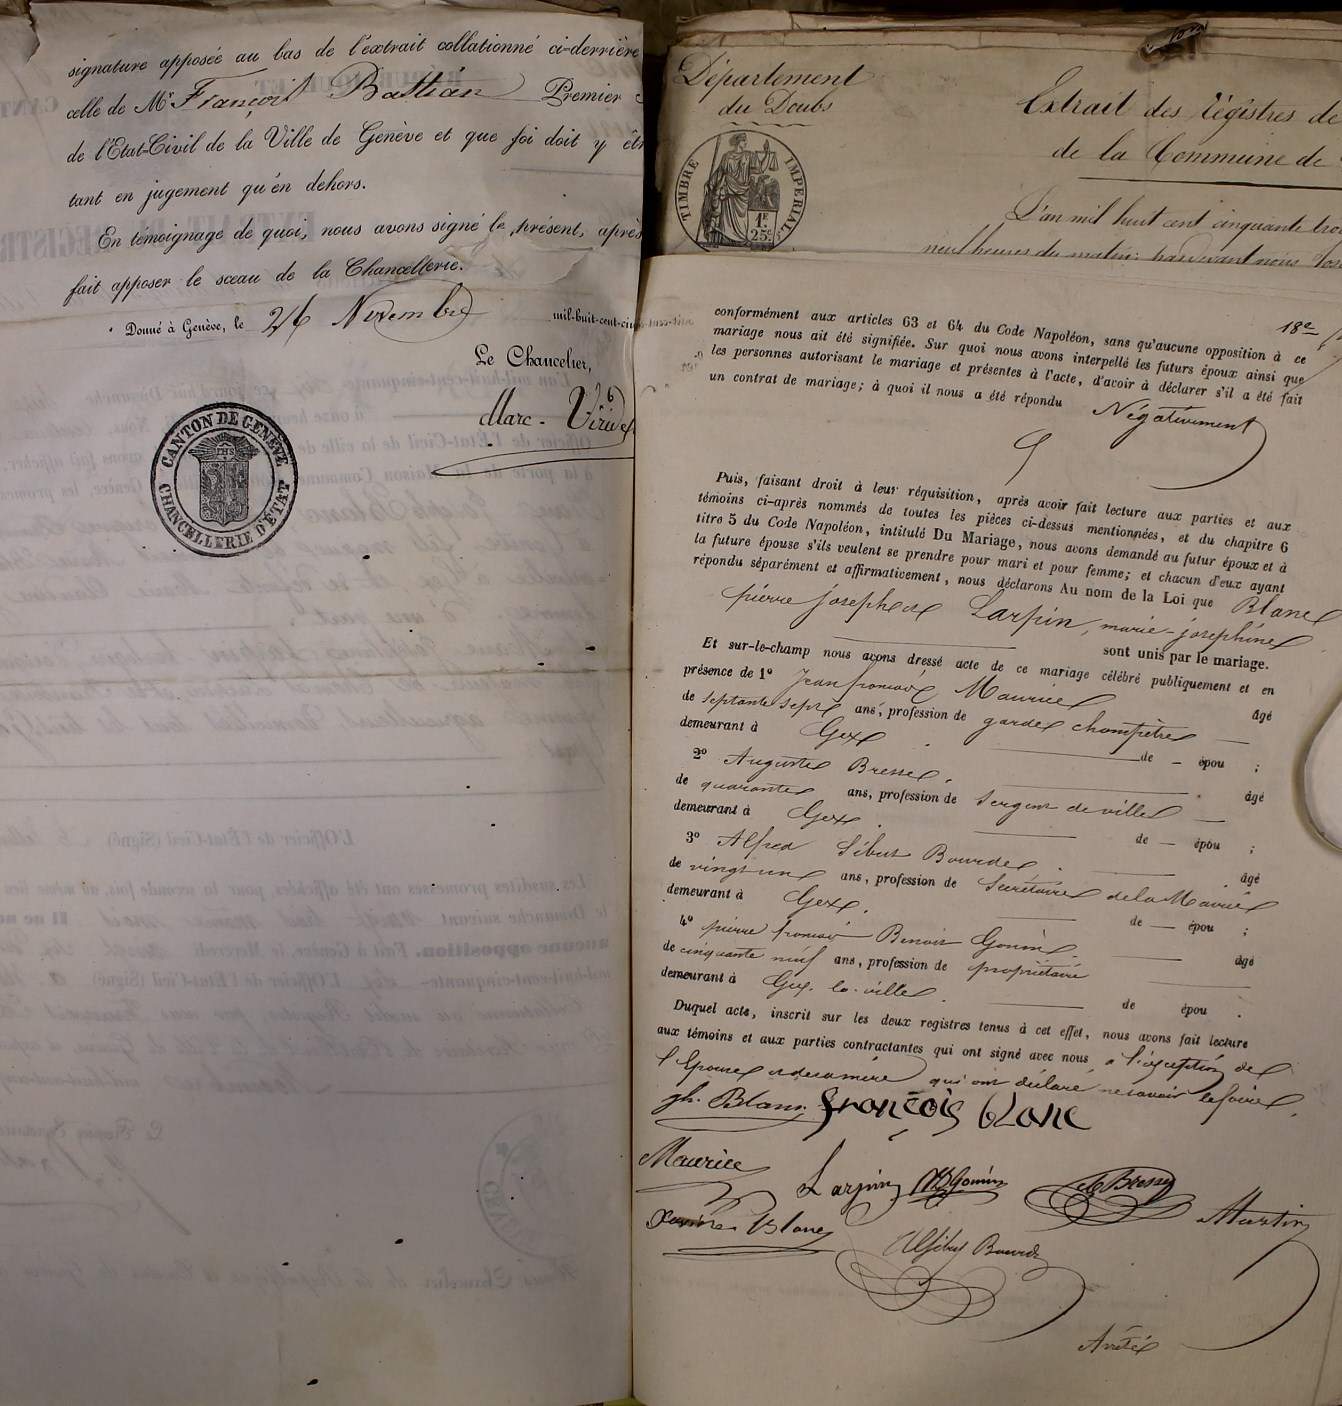 signature apposée au bas de l'extrait collationné ci-derrière
celle de Mr François Bastian Premier
de l'Etat-Civil de la Ville de Genève et que foi doit y
tant en jugement qu'en dehors.
En témoignage de quoi, nous avons signé le présent, après
fait apposer le sceau de la Chancellerie.
Donné à Genève, le 26 Novembre mil-huit-cent-cin
Le Chancelier,
Marc-Viridet
CANTON DE GENÈVE
CHANCELLERIE D'ÉTAT
Département
du Doubs
TIMBRE IMPERIAL
1F.
25c
Extrait des régistres de
de la Commune de
L'an mil huit cent cinquante troi
neuf heures du matin; pardevant nous Jos
18e
conformément aux articles 63 et 64 du Code Napoléon, sans qu'aucune opposition à ce
mariage nous ait été signifiée. Sur quoi nous avons interpellé les futurs époux ainsi que
les personnes autorisant le mariage et présentes à l'acte, d'avoir à déclarer s'il a été fait
un contrat de mariage; à quoi il nous a été répondu Négativement
Puis, faisant droit à leur réquisition, après avoir fait lecture aux parties et aux
témoins ci-après nommés de toutes les pièces ci-dessus mentionnées, et du chapitre 6
titre 5 du Code Napoléon, intitulé Du Mariage, nous avons demandé au futur époux et à
la future épouse s'ils veulent se prendre pour mari et pour femme; et chacun d'eux ayant
répondu séparément et affirmativement, nous déclarons Au nom de la Loi que Blanc
pierre joseph et Larpin, marie-joséphine
sont unis par le mariage.
Et sur-le-champ nous avons dressé acte de ce mariage célébré publiquement et en
présence de 1º Jean françois Maurice âgé
de septante sept ans, profession de garde champêtre
demeurant à Gex. de — épou ;
2º Auguste Bresse. âgé
de quarante ans, profession de sergent de ville
demeurant à Gex. de — épou ;
3º Alfred Sibut Bourde. âgé
de vingt un ans, profession de Secrétaire de la Mairie
demeurant à Gex. de — épou ;
4º pierre françois Benoit Gonin. âgé
de cinquante neuf ans, profession de propriétaire
demeurant à Gex-la-ville. de épou .
Duquel acte, inscrit sur les deux registres tenus à cet effet, nous avons fait lecture
aux témoins et aux parties contractantes qui ont signé avec nous à l'exception de
l'Epouse et de sa mère qui ont déclaré ne savoir le faire.
jh. Blanc françois blanc
Maurice Larpin Gonin Bresse Martin
Blanc ASibut Bourde